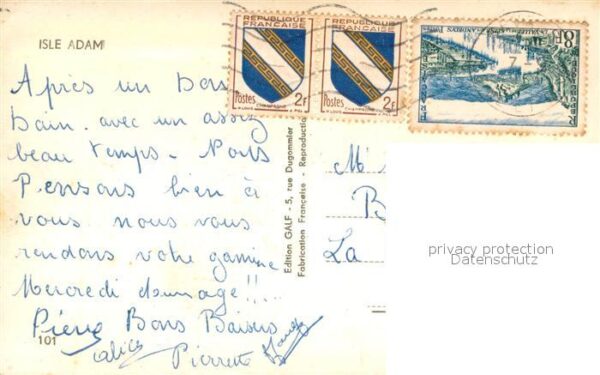 ISLE ADAM
Après un bon
bain. avec un assez
beau temps. Nous
Pensons bien à
vous nous vous
rendons votre gamine
Mercredi dommage !!...
Pierre Bons Baisers
alice Pierrette
101
Edition GALF - 5, rue Dugommier
Fabrication Française - Reproduction
REPUBLIQUE FRANÇAISE
Postes 2F
CHAMPAGNE
REPUBLIQUE FRANÇAISE
Postes 2F
CHAMPAGNE
8F
M
B
La
privacy protection
Datenschutz